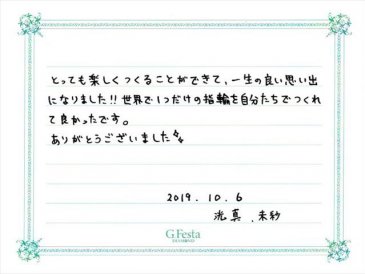 とっても楽しくつくることができて、一生の良い思い出
になりました!!世界で1つだけの指輪を自分たちでつくれ
て良かったです。
ありがとうございました
2019.10.6
洸真、未紗
G.Festa